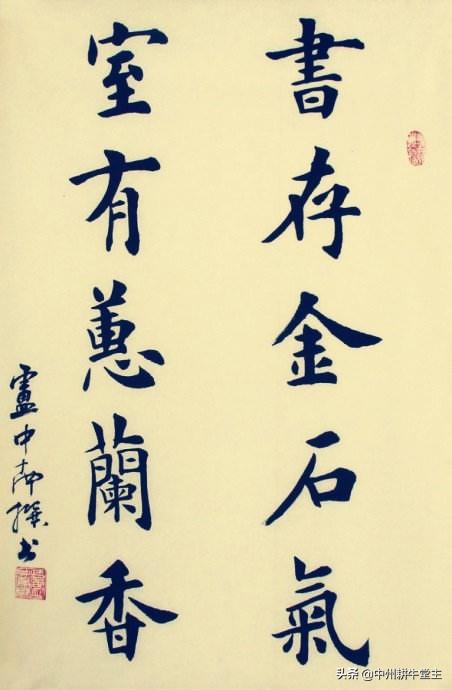 書存金石氣
室有蕙蘭香
盧中南撰书
头条 @中州耕牛堂主